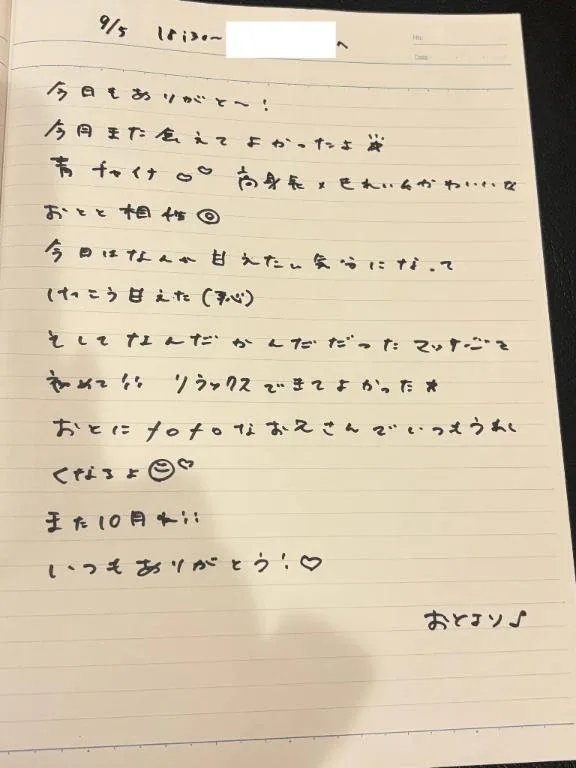 9/5 18:30~ へ
No.
Date
今日もありがと〜!
今月また会えてよかったよ
青チャイナ♡♡ 高身長×きれい&かわいいな
おとと相性◎
今日はなんか甘えたい気分になって
けっこう甘えた(予心)
そしてなんだかんだだった マッサージも
初めて!! リラックスできてよかった★
おとにメロメロなお兄さんでいつもうれし
くなるよ☺♡
また10月ね!!
いつもありがとう!♡
おとより♪